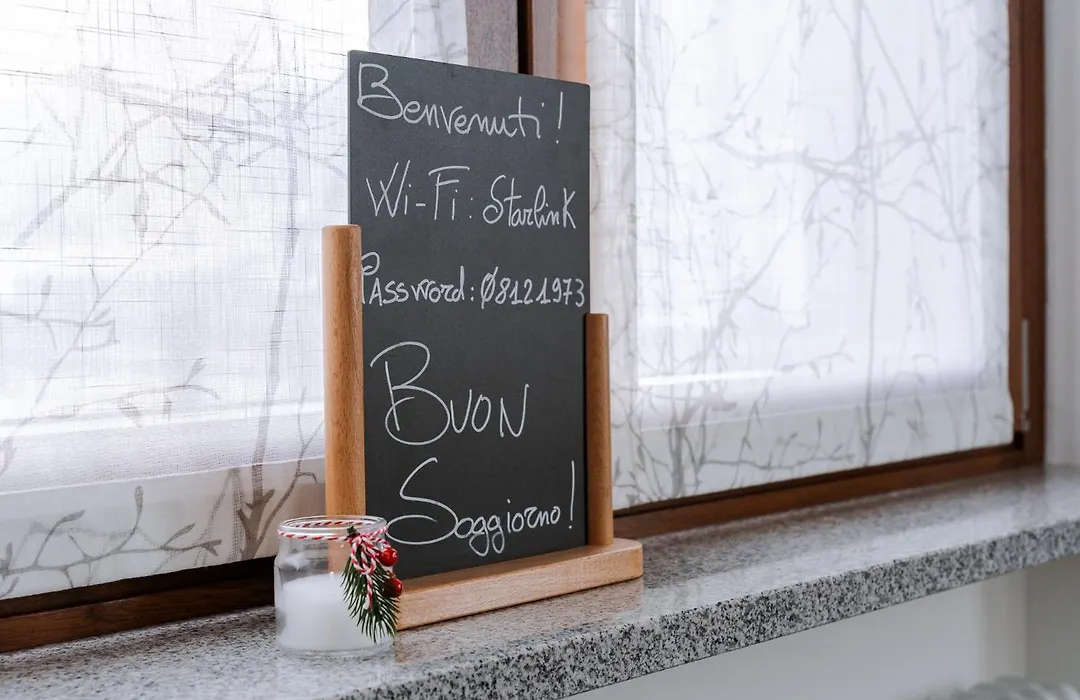 Benvenuti!
Wi-Fi: Starlink
Password: 08121973
Buon
Soggiorno!